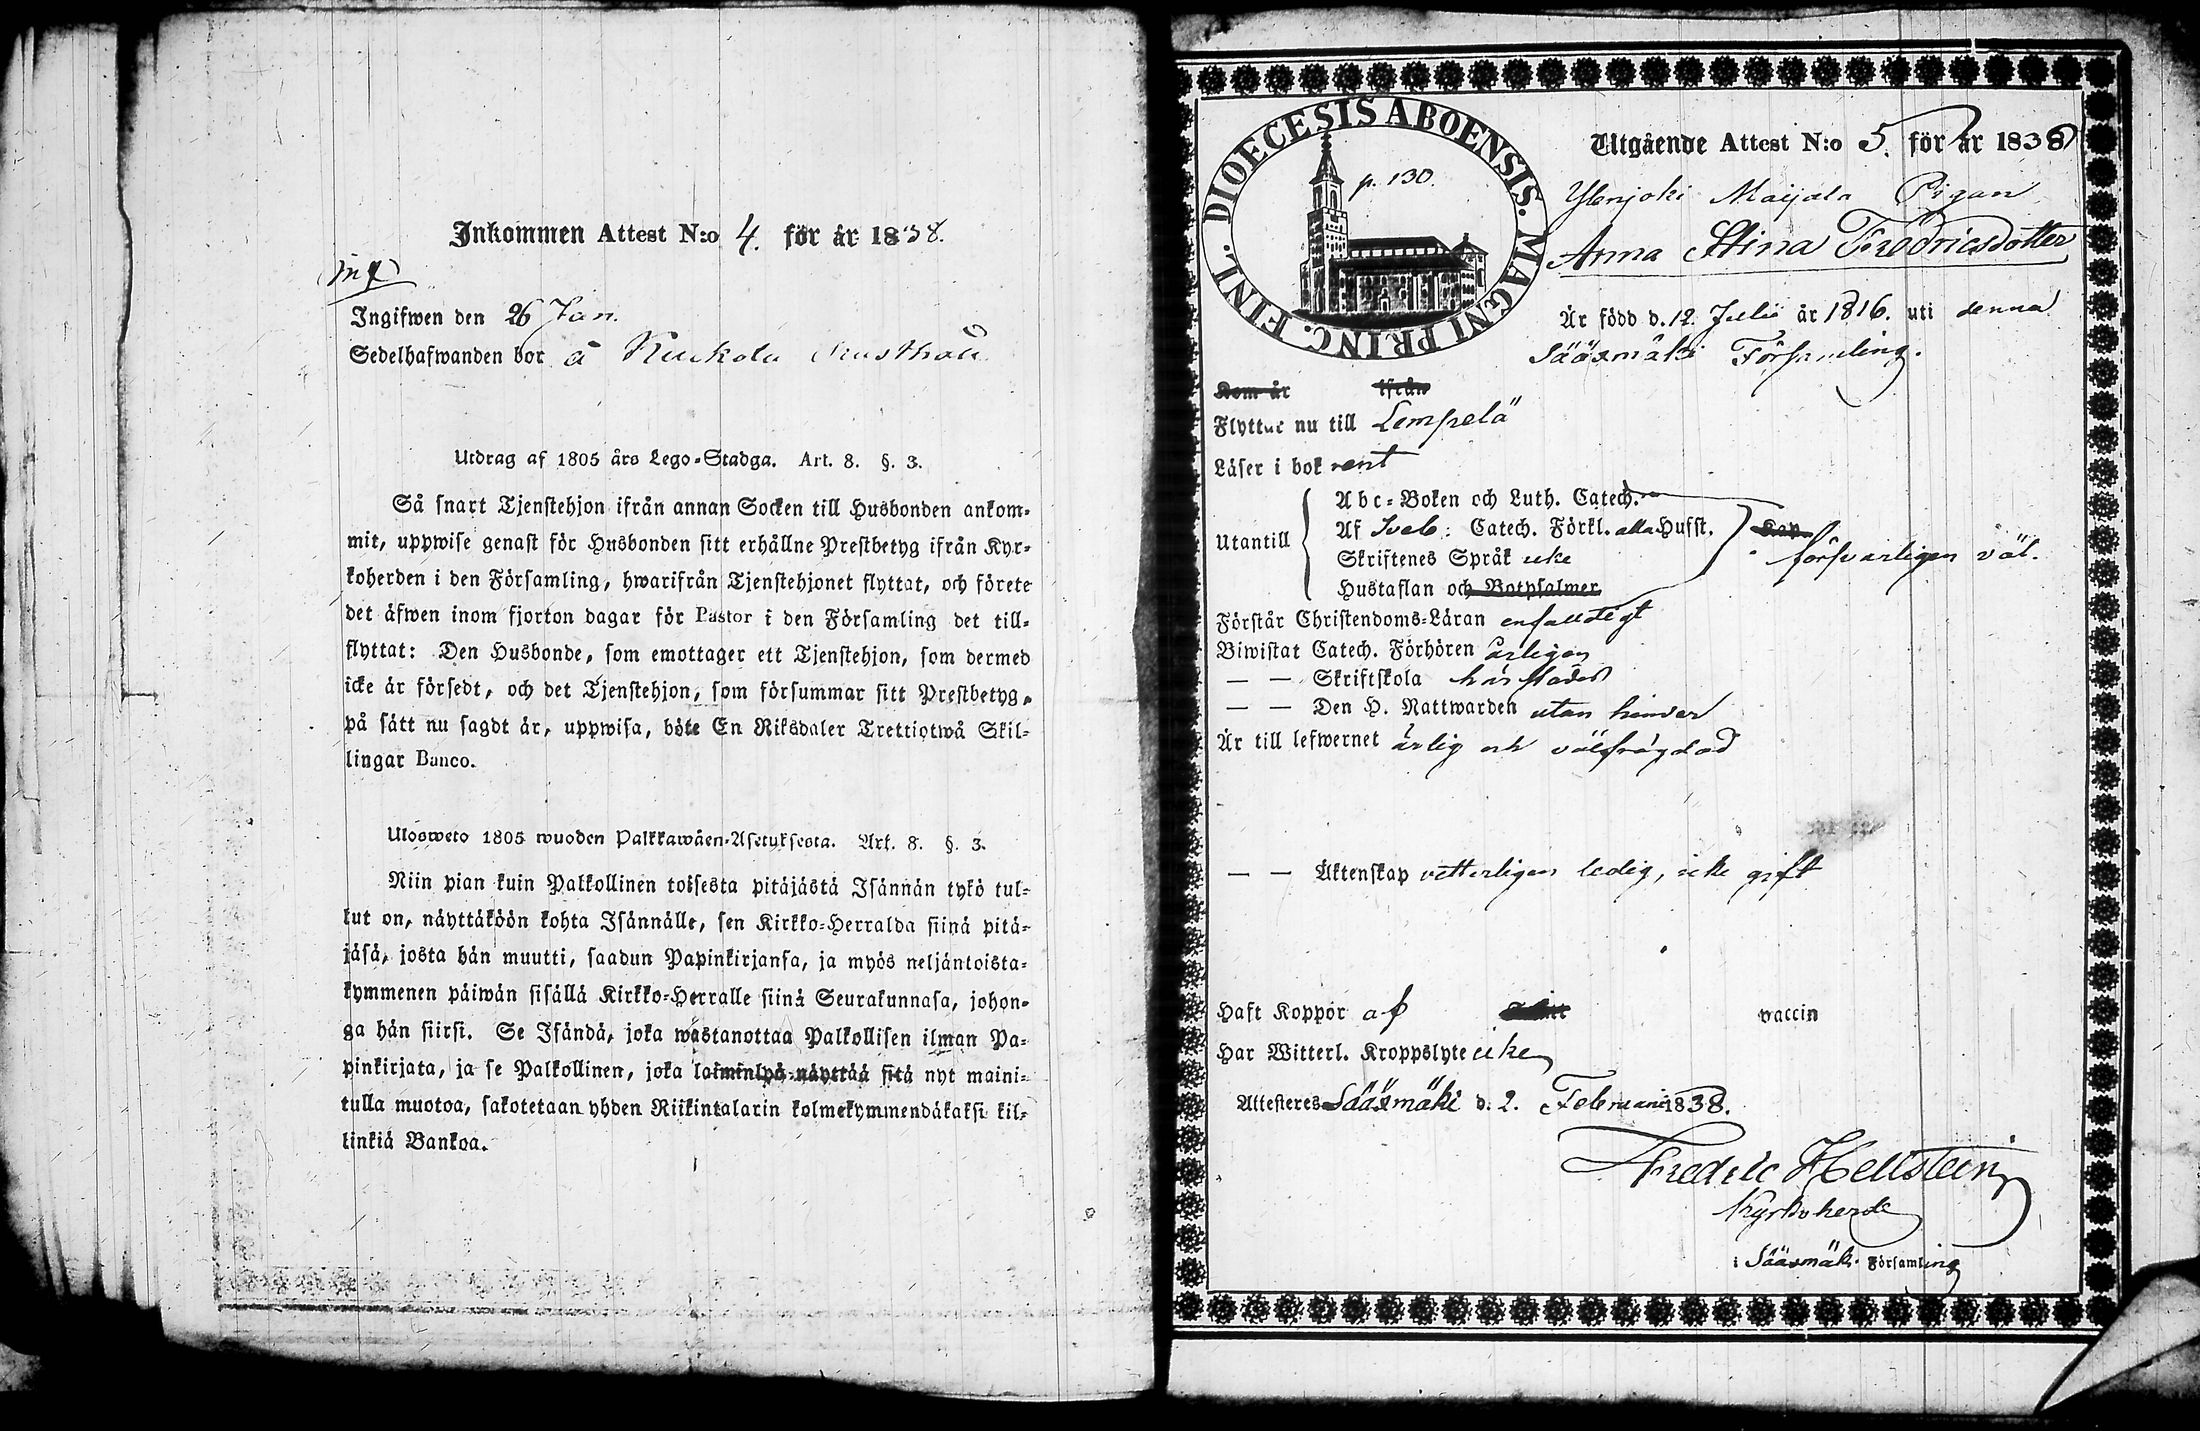 Inkommen Attest N:o 4. för år 1838.
Ingifwen den 26 Jan.
Sedelhafwanden bor å Kuckola Rusthåll
Utdrag af 1805 års Lego-Stadga. Art. 8. §. 3.
Så snart Tjenstehjon ifrån annan Socken till Husbonden ankom-
mit, uppwise genast för Husbonden sitt erhållne Prestbetyg ifrån Kyr-
koherden i den Församling, hwarifrån Tjenstehjonet flyttat, och förete
det äfwen inom fjorton dagar för Pastor i den Församling det till-
flyttat: Den Husbonde, som emottager ett Tjenstehjon, som dermed
icke är försedt, och det Tjenstehjon, som försummar sitt Prestbetyg,
på sätt nu sagdt är, uppwisa, böte En Riksdaler Trettiotwå Skil-
lingar Banco.
Ulosweto 1805 wuoden Palkkawäen-Asetuksesta. Art. 8. §. 3.
Niin pian kuin Palkollinen toisesta pitäjästä Isännän tykö tul-
lut on, näyttäköön kohta Isännälle, sen Kirkko-Herralda siinä pitä-
jäsä, josta hän muutti, saadun Papinkirjansa, ja myös neljäntoista-
kymmenen päiwän sisällä Kirkko-Herralle siinä Seurakunnasa, johon-
ga hän siirsi. Se Isändä, joka wastanottaa Palkollisen ilman Pa-
pinkirjata, ja se Palkollinen, joka laiminlyö näyttää sitä nyt maini-
tulla muotoa, sakotetaan yhden Riikintalarin kolmekymmendäkaksi kil-
linkiä Bankoa.
DIOECESIS ABOENSIS. MAGNI PRINC. FINL.
p. 130.
Utgående Attest N:o 5. för år 1838
Ylenjoki Maijala Pigan
Anna Stina Fredricsdotter
Är född d. 12 Julii år 1816. uti denna
Sääxmäki Församling.
Kom år ifrån
Flyttar nu till Lempelä
Läser i bok rent
Utantill
Abc-Boken och Luth. Catech.
Af Sveb: Catech. Förkl. alla Hufst.
Skriftenes Språk icke
Hustaflan och Botpsalmer
Kap.
försvarligen väl.
Förstår Christendoms-Läran enfaldigt
Biwistat Catech. Förhören årligen
— — Skriftskola härstädes
— — Den H. Nattwarden utan hinder
Är till lefwernet ärlig och välfrägdad
— — Äktenskap vetterligen ledig, icke gift
Haft Koppor af vaccin
Har Witterl. Kroppslyte icke
Attesteres Sääxmäki d. 2. Februarii 1838.
Fredric Hellsteen
Kyrkoherde
i Sääxmäki Församling